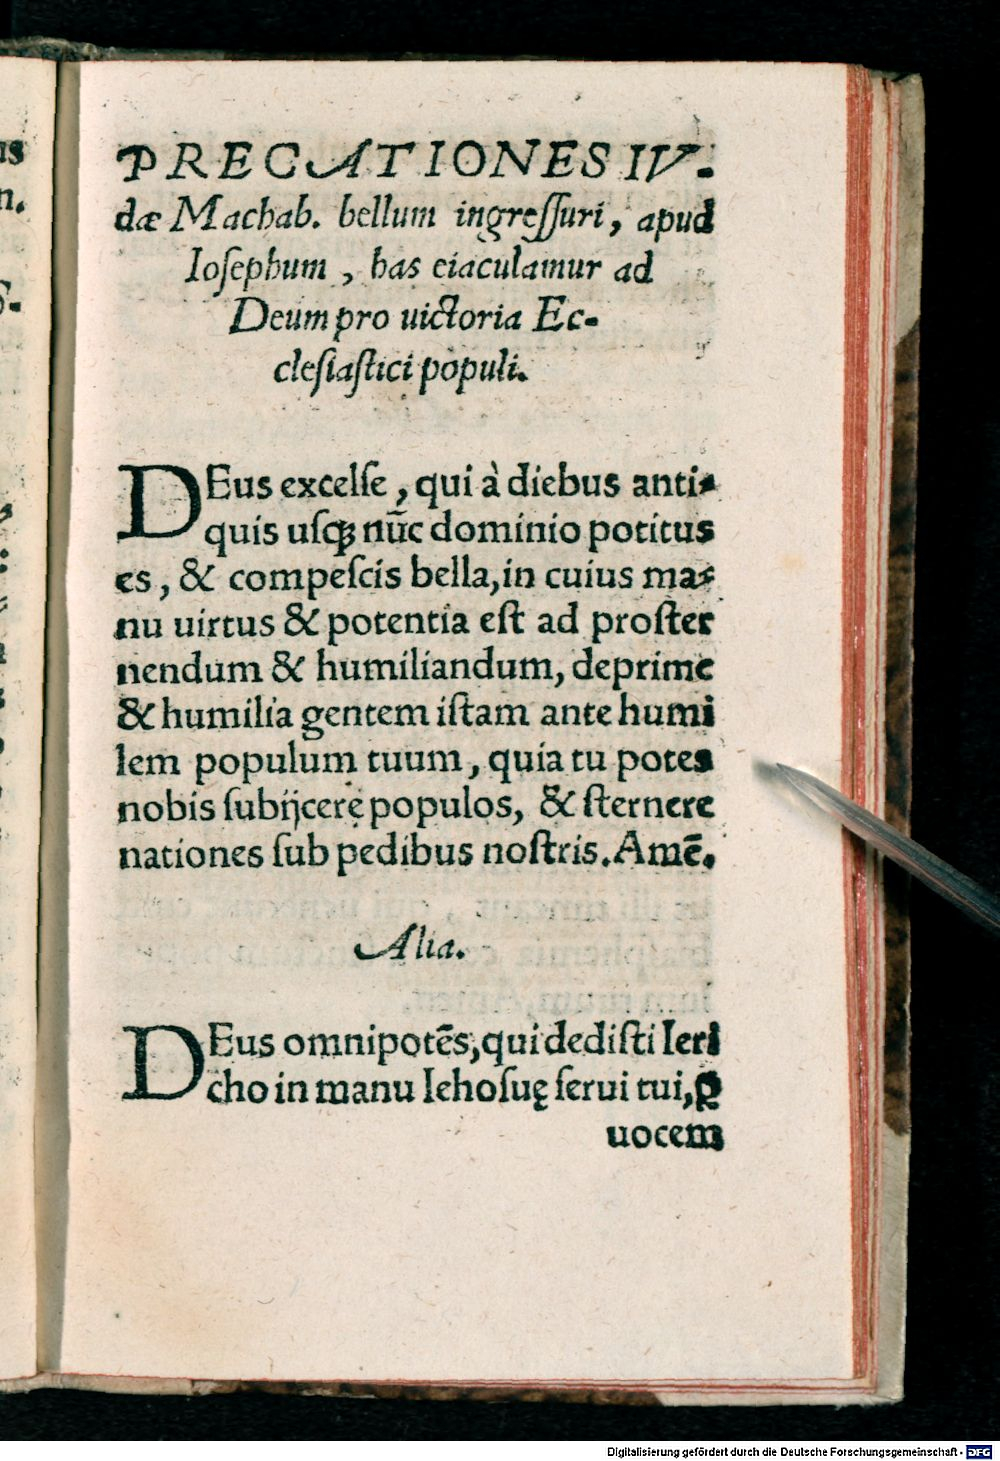 us
n.
PRECATIONES IV.
dæ Machab. bellum ingreſſuri, apud
Ioſephum, has eiaculamur ad
Deum pro uictoria Ec-
cleſiaſtici populi.
DEus excelſe, qui à diebus anti-
quis uſqꝫ nūc dominio potitus
es, & compeſcis bella, in cuius ma-
nu uirtus & potentia eſt ad proſter
nendum & humiliandum, deprime
& humilia gentem iſtam ante humi
lem populum tuum, quia tu potes
nobis ſubijcere populos, & ſternere
nationes ſub pedibus noſtris. Amē.
Alia.
DEus omnipotēs, qui dediſti Ieri
cho in manu Iehoſuę ſerui tui, ꝑ
uocem
Digitalisierung gefördert durch die Deutsche Forschungsgemeinschaft - DFG